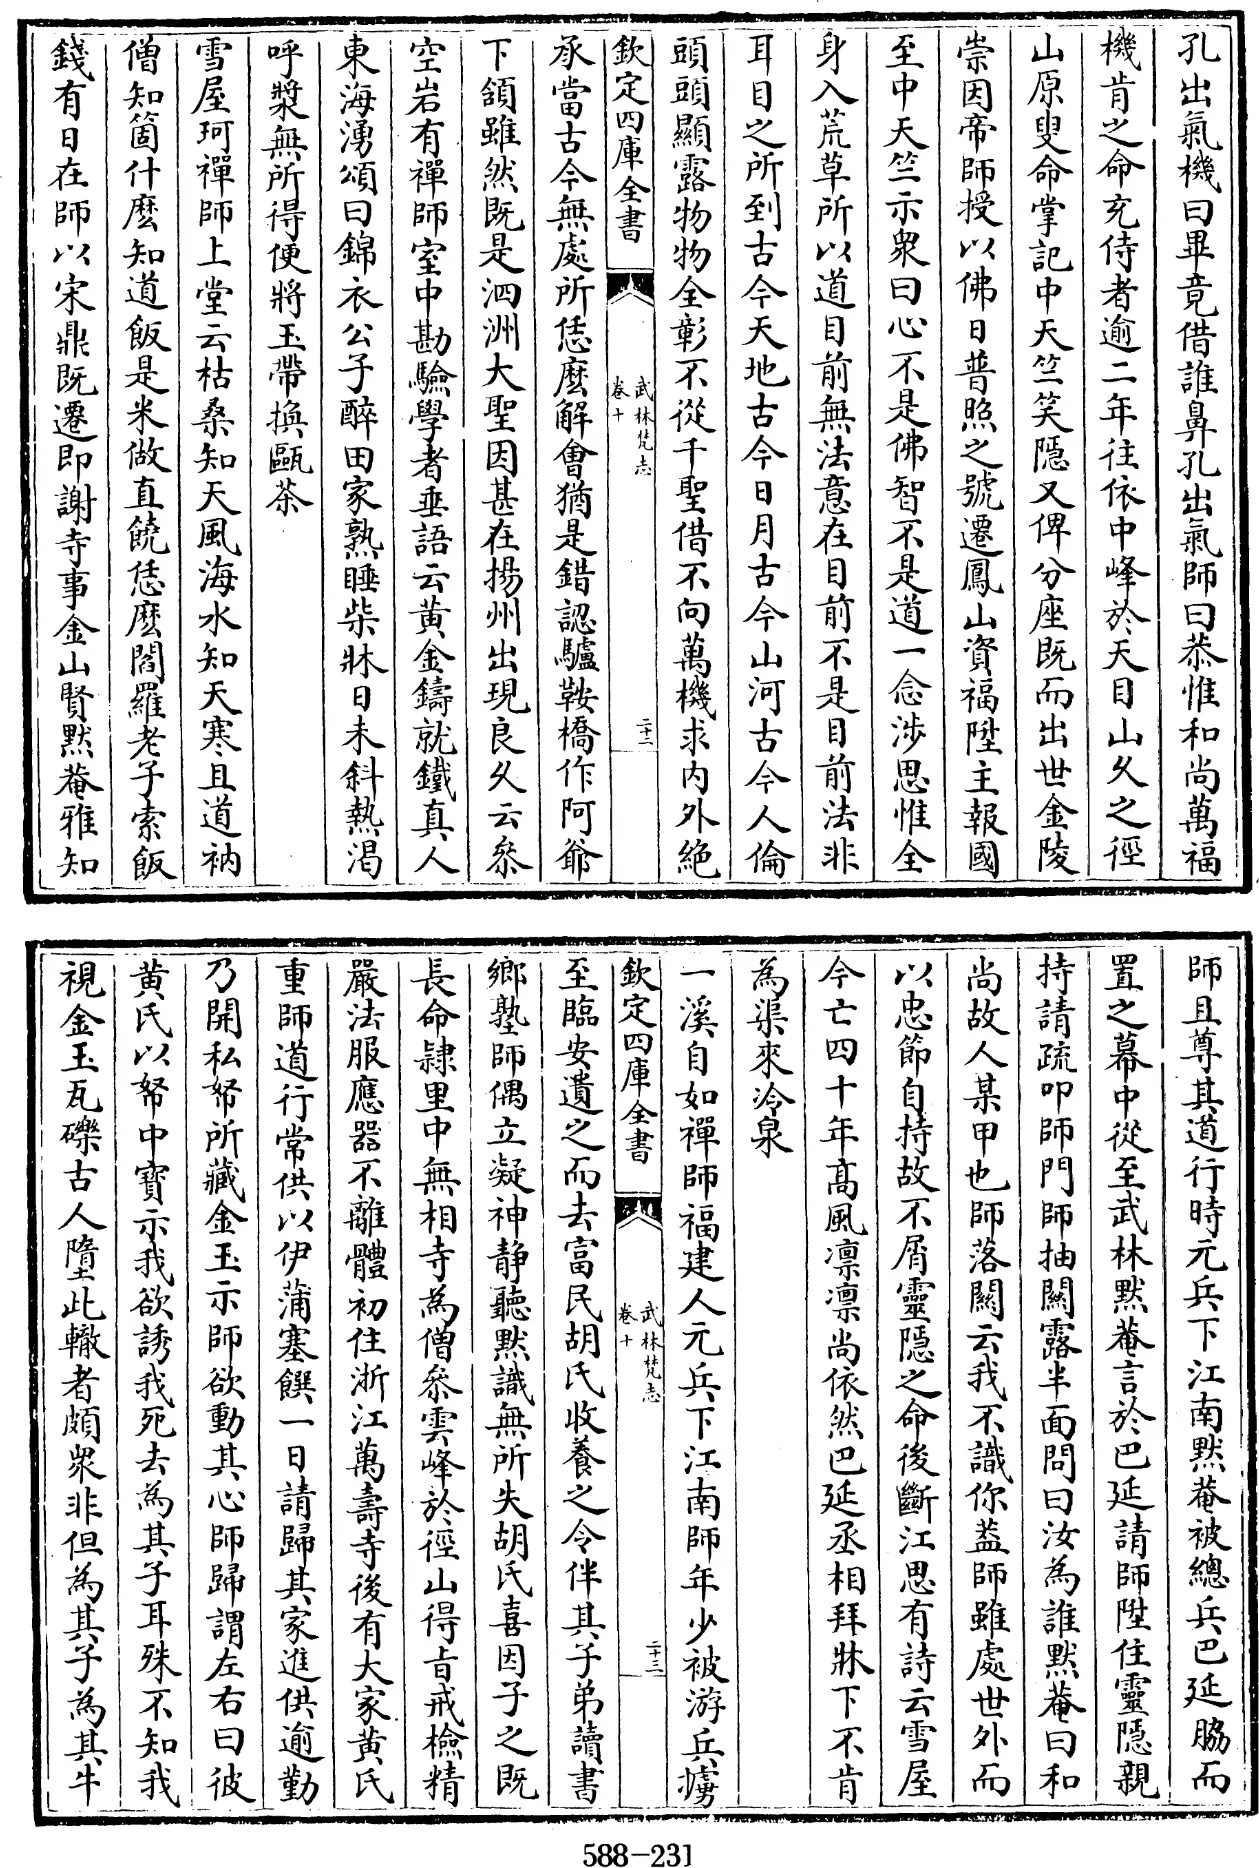 孔出氣機曰畢竟借誰鼻孔出氣師曰恭惟和尚萬福
機肯之命充侍者逾二年往依中峰於天目山久之徑
山原叟命掌記中天竺笑隱又俾分座既而出世金陵
崇因帝師授以佛日普照之號遷鳳山資福陞主報國
至中天竺示衆曰心不是佛智不是道一念涉思惟全
身入荒草所以道目前無法意在目前不是目前法非
耳目之所到古今天地古今日月古今山河古今人倫
頭頭顯露物物全彰不從千聖借不向萬機求内外絶
欽定四庫全書
武林梵志
卷十
二十二
承當古今無處所恁麽解會猶是錯認驢鞍橋作阿爺
下頷雖然既是泗洲大聖因甚在揚州出現良久云叅
空岩有禪師室中勘驗學者垂語云黄金鑄就鐵真人
東海湧頌曰錦衣公子醉田家熟睡柴牀日未斜熱渴
呼漿無所得便將玉帶換甌茶
雪屋珂禪師上堂云枯桑知天風海水知天寒且道衲
僧知箇什麽知道飯是米做直饒恁麽閻羅老子索飯
錢有日在師以宋鼎既遷即謝寺事金山賢黙菴雅知
師且尊其道行時元兵下江南黙菴被總兵巴延脇而
置之幕中從至武林黙菴言於巴延請師陞住靈隱親
持請疏叩師門師抽關露半面問曰汝為誰黙菴曰和
尚故人某甲也師落關云我不識你葢師雖處世外而
以忠節自持故不屑靈隱之命後斷江思有詩云雪屋
今亡四十年髙風凛凛尚依然巴延丞相拜牀下不肯
為渠來泠泉
一溪自如禪師福建人元兵下江南師年少被游兵擄
欽定四庫全書
武林梵志
卷十
二十三
至臨安遺之而去富民胡氏收養之令伴其子弟讀書
鄉塾師偶立凝神静聽黙識無所失胡氏喜因子之既
長命隷里中無相寺為僧叅雲峰於徑山得㫖戒檢精
嚴法服應器不離體初住浙江萬壽寺後有大家黄氏
重師道行常供以伊蒲塞饌一日請歸其家進供逾勤
乃開私帑所藏金玉示師欲動其心師歸謂左右曰彼
黄氏以帑中寳示我欲誘我死去為其子耳殊不知我
視金玉瓦礫古人墮此轍者頗衆非但為其子為其牛
588-231